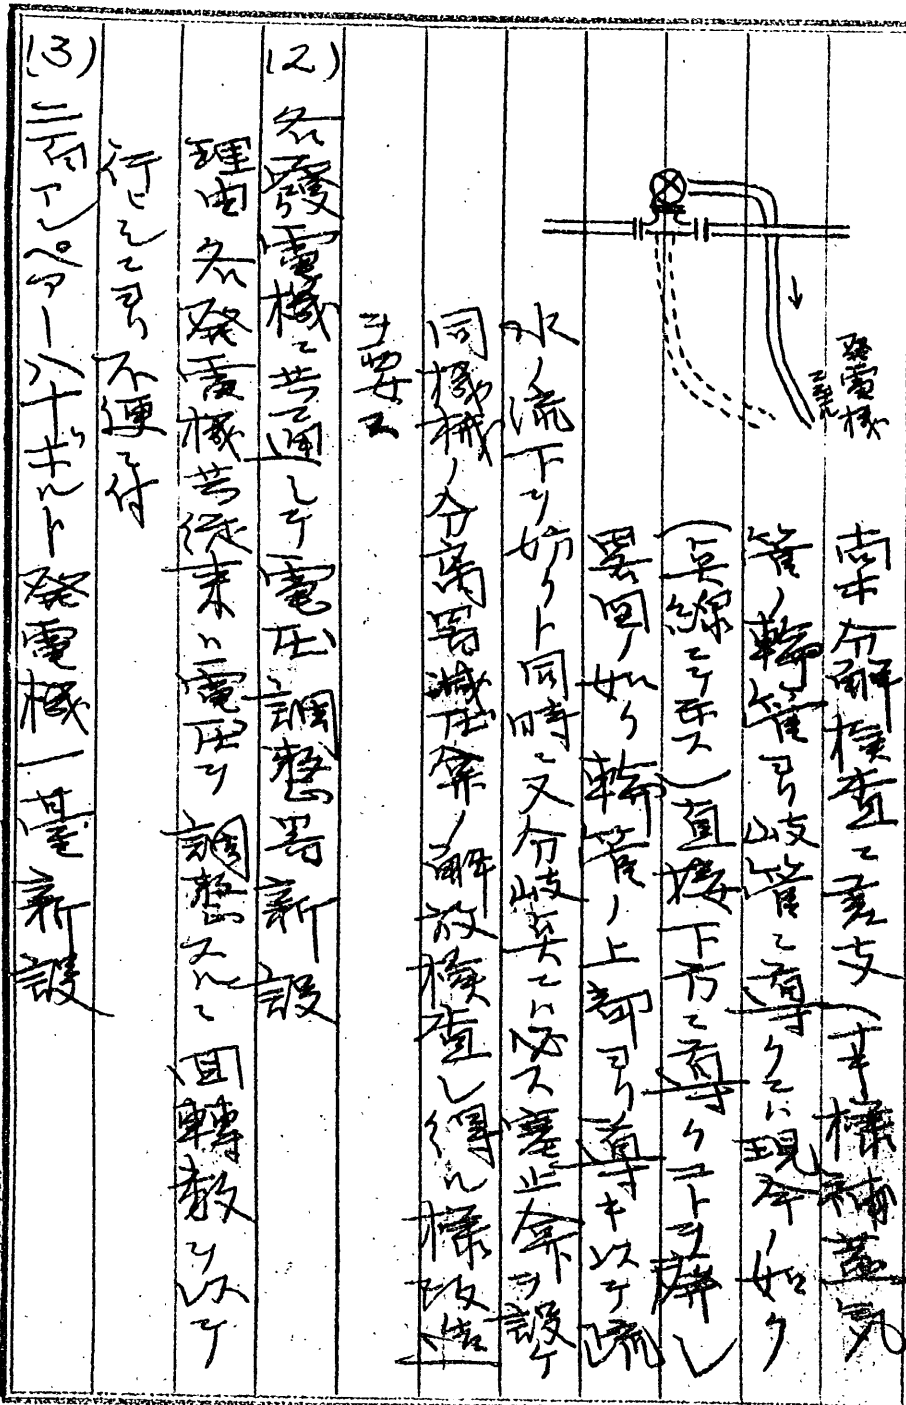 発電機
ニ至ル
尚ホ分解検査ニ差支ナキ様補蒸気
管ノ輪管ヨリ岐管ニ導クニハ現在ノ如ク
(点線ニテ示ス)直接下方ニ導クコトヲ廃シ
畧図ノ如ク輪管ノ上部ヨリ導キ以テ流
水ノ流下ヲ妨クト同時ニ又分岐点ニハ必ス塞止弁ヲ設ケ
同機械ノ分離器減圧弁ノ解放検査シ得ル様改造
ヲ要ス
(2) 各發電機ニ共通シテ電圧調整器新設
理由各発電機共従来ハ電圧ヲ調整スルニ回轉数ヲ以テ
行ヒシニヨリ不便ニ付
(3) 三百アンペアー八十ボルト発電機一臺新設